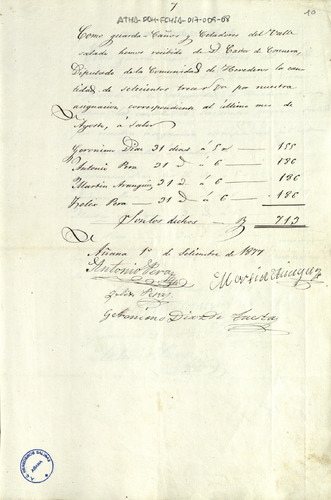 7
ATHA-DAH-FCHSA-017-009-08
10
Como guarda Caños y Celadores del Valle
salado hemos recibido de D.
Diputado de la Comunidad de Herederos la can
tidad de setecientos trece r.s v.n por nuestra
asignacion correspondiente al último mes de
Agosto, á saber
Geronimo Diaz 31 dias á 5 r.s — 155
Antonio Pera 31 d á 6 — 186
Martin Aranguiz 31 d á 6 — 186
Pera — 31 d á 6 — 186
Son los dichos — R 713
Añana 1º de Setiembre de 1877
Antonio Peray
Martin Aranguiz
Peray
Geronimo Diaz de Tuesta
Añana